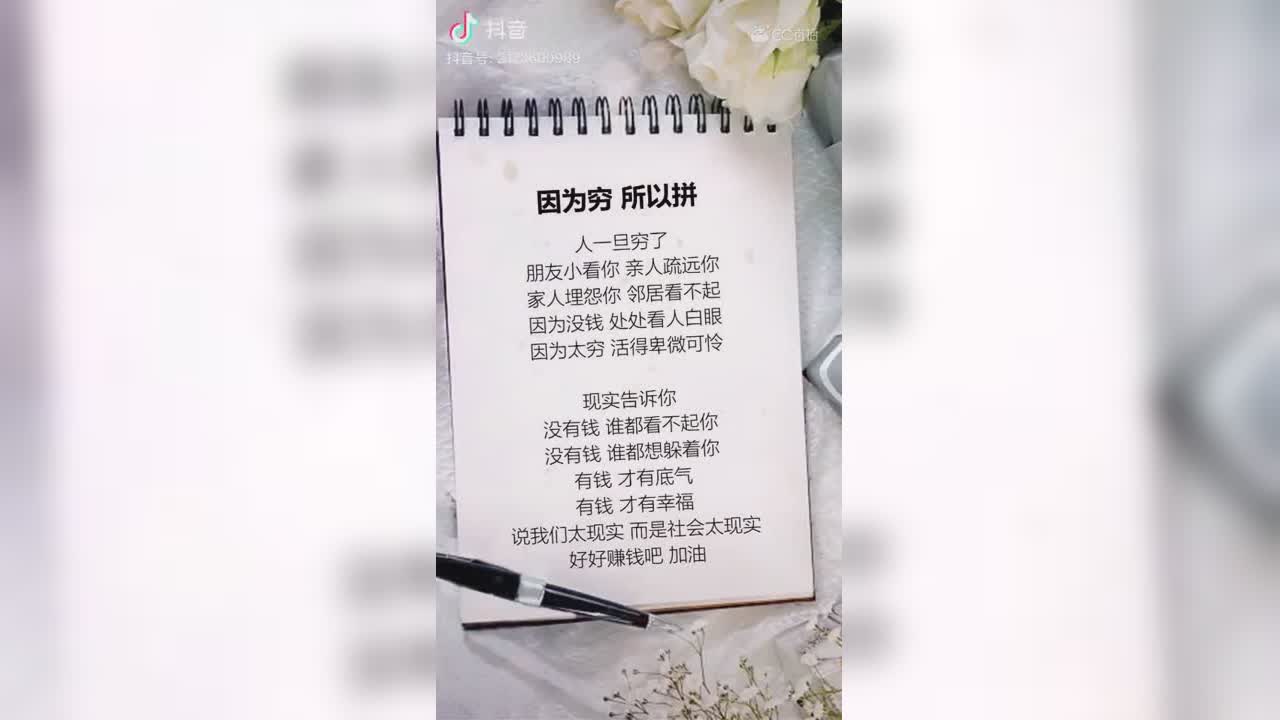 抖音
抖音号:
CC直播
因为穷 所以拼
人一旦穷了
朋友小看你 亲人疏远你
家人埋怨你 邻居看不起
因为没钱 处处看人白眼
因为太穷 活得卑微可怜
现实告诉你
没有钱 谁都看不起你
没有钱 谁都想躲着你
有钱 才有底气
有钱 才有幸福
说我们太现实 而是社会太现实
好好赚钱吧 加油